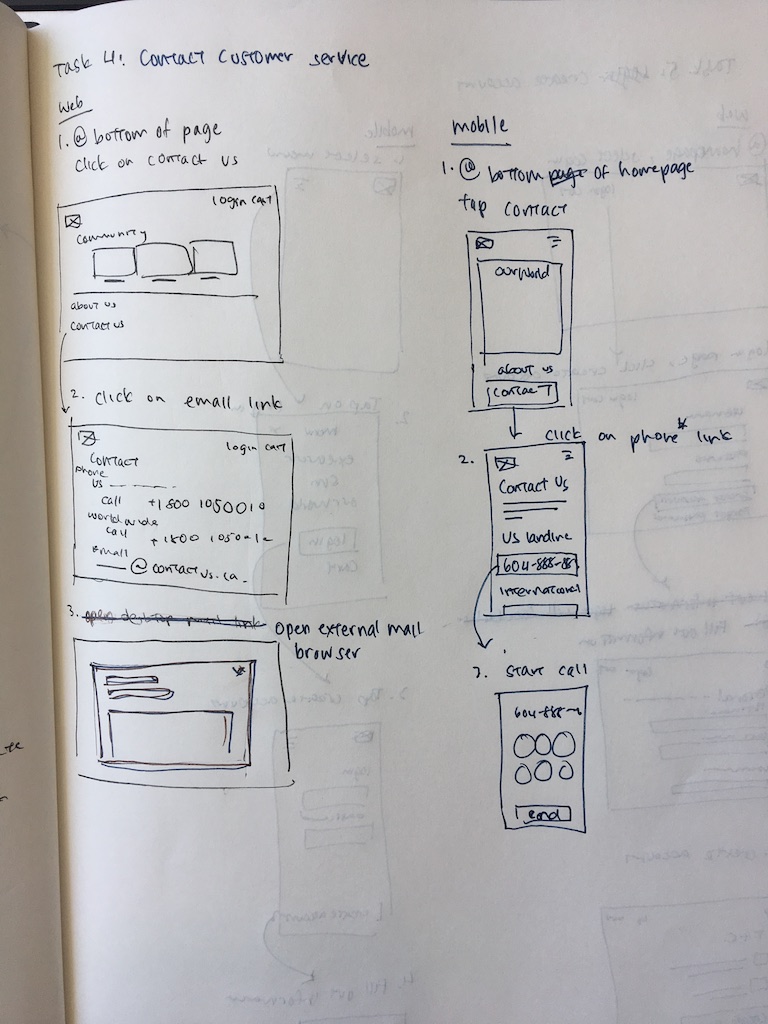 Task 4: Contact Customer service
Web
1. @ bottom of page
click on contact us
login cart
Community
about us
contact us
2. click on email link
login cart
Contact
phone
us
call +1800 1050010
worldwide
call
email
@contactus.ca
3. open desktop email link open external mail
browser
mobile
1. @ bottom page of homepage
tap contact
our world
about us
contact
2. click on phone* link
Contact Us
US landline
604-888-88
International
3. start call
604-888-8
end